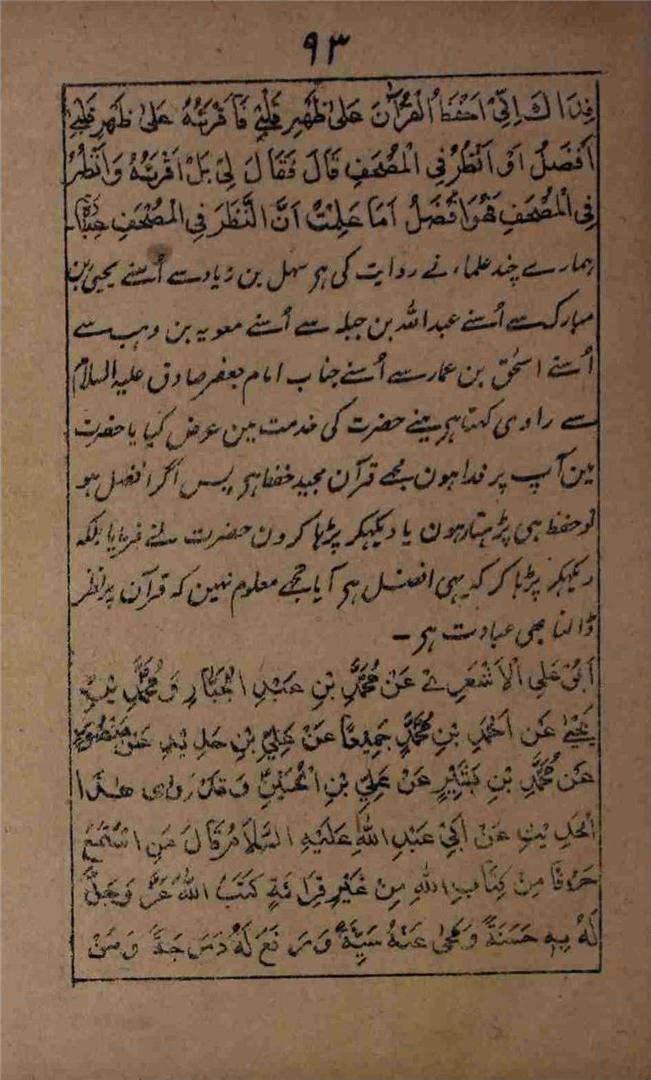 ۹۳
فِدَاكَ اِنِّیْ اَحْفَظُ الْقُرْاٰنَ عَلیٰ ظَهْرِ قَلْبِیْ فَاَقْرَئُهُ عَلیٰ ظَهْرِ قَلْبِیْ
اَفْضَلُ اَوْ اَنْظُرُ فِی الْمُصْحَفِ قَالَ فَقَالَ لِیْ بَلْ اِقْرَئْهُ وَانْظُرْ
فِی الْمُصْحَفِ فَهُوَ اَفْضَلُ اَمَا عَلِمْتَ اَنَّ النَّظَرَ فِی الْمُصْحَفِ عِبَادَةٌ۔
ہمارے چند علماء نے روایت کی ہر سہل بن زیاد سے اُسنے یحییٰ بن
مبارک سے اُسنے عبداللہ بن جبلہ سے اُسنے معویہ بن وہب سے
اُسنے اسحٰق بن عمار سے اُسنے جناب امام جعفر صادق علیہ السلام
سے راوی کہتا ہر مینے حضرت کی خدمت مین عرض کیا یا حضرت
مین آپ پر فدا ہون مجھے قرآن مجید حفظ ہر پس اگر افضل ہو
تو حفظ ہی پڑہتا رہون یا دیکہکر پڑہا کرون حضرت نے فرمایا بلکہ
دیکہکر پڑہا کر کہ یہی افضل ہر آیا تجھے معلوم نہین کہ قرآن پر نظر
ڈالنا بھی عبادت ہر ۔
اَبُوْ عَلِی الْاَشْعَرِیْ عَنْ مُحَمَّدِ بْنِ عَبْدِ الْجَبَّارِ وَ مُحَمَّدِ بْنِ
یَحْیٰی عَنْ اَحْمَدَ بْنِ مُحَمَّدٍ جَمِیْعًا عَنْ عَلِیِّ بْنِ حَدِیْدٍ عَنْ مَنْصُوْرٍ
عَنْ مُحَمَّدِ بْنِ بَشِیْرٍ عَنْ عَلِیِّ بْنِ الْحُسَیْنِؑ وَ قَدْ رَوٰی هٰذَا
الْحَدِیْثَ عَنْ اَبِیْ عَبْدِ اللهِ عَلَیْهِ السَّلَامُ قَالَ مَنِ اسْتَمَعَ
حَرْفًا مِنْ کِتَابِ اللهِ مِنْ غَیْرِ قِرَائَةٍ کَتَبَ اللهُ عَزَّ وَجَلَّ
لَهُ بِهٖ حَسَنَةً وَ مَحٰی عَنْهُ سَیِّئَةً وَ رَفَعَ لَهُ دَرَجَةً وَ مَنْ